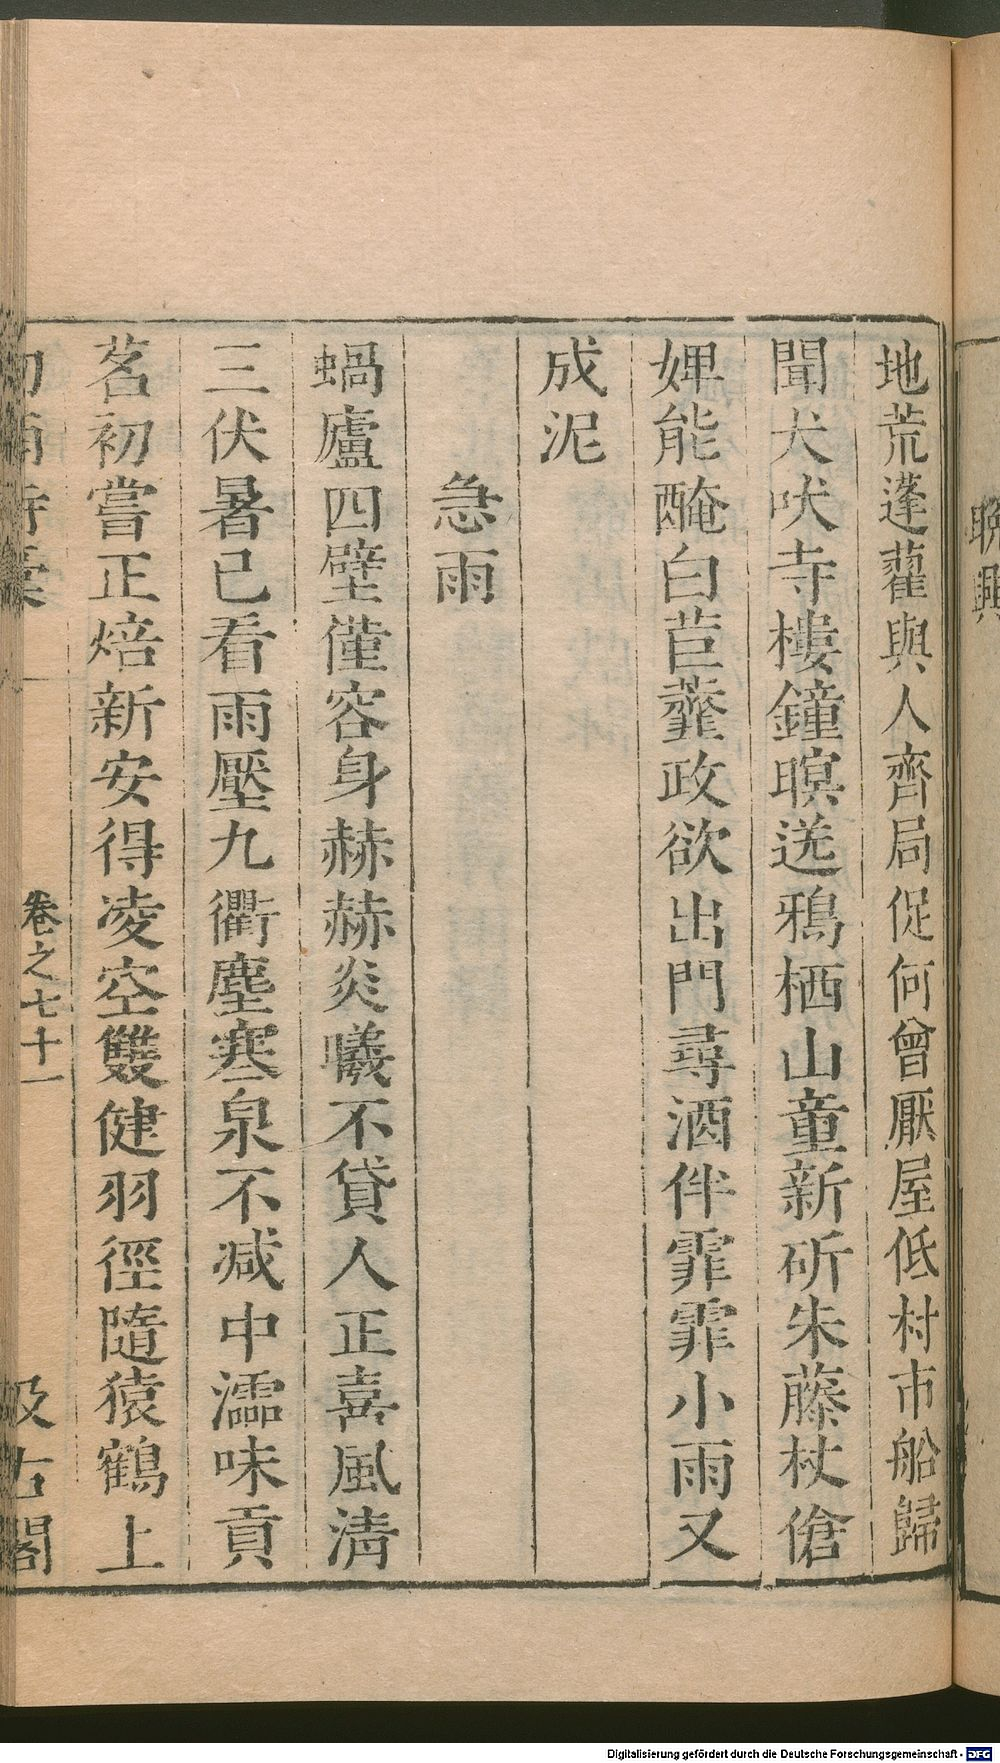 晩興
地荒蓬藋與人齊局促何曾厭屋低村市船歸
聞犬吠寺樓鐘暝送鴉栖山童新斫朱藤杖傖
婢能醃白苣虀政欲出門尋酒伴霏霏小雨又
成泥
急雨
蝸廬四壁僅容身赫赫炎曦不貸人正喜風淸
三伏暑已看雨壓九衢塵寒泉不減中濡味貢
茗初嘗正焙新安得凌空雙健羽徑隨猿鶴上
劍南詩稾
卷之七十一
汲古閣
Digitalisierung gefördert durch die Deutsche Forschungsgemeinschaft - DFG